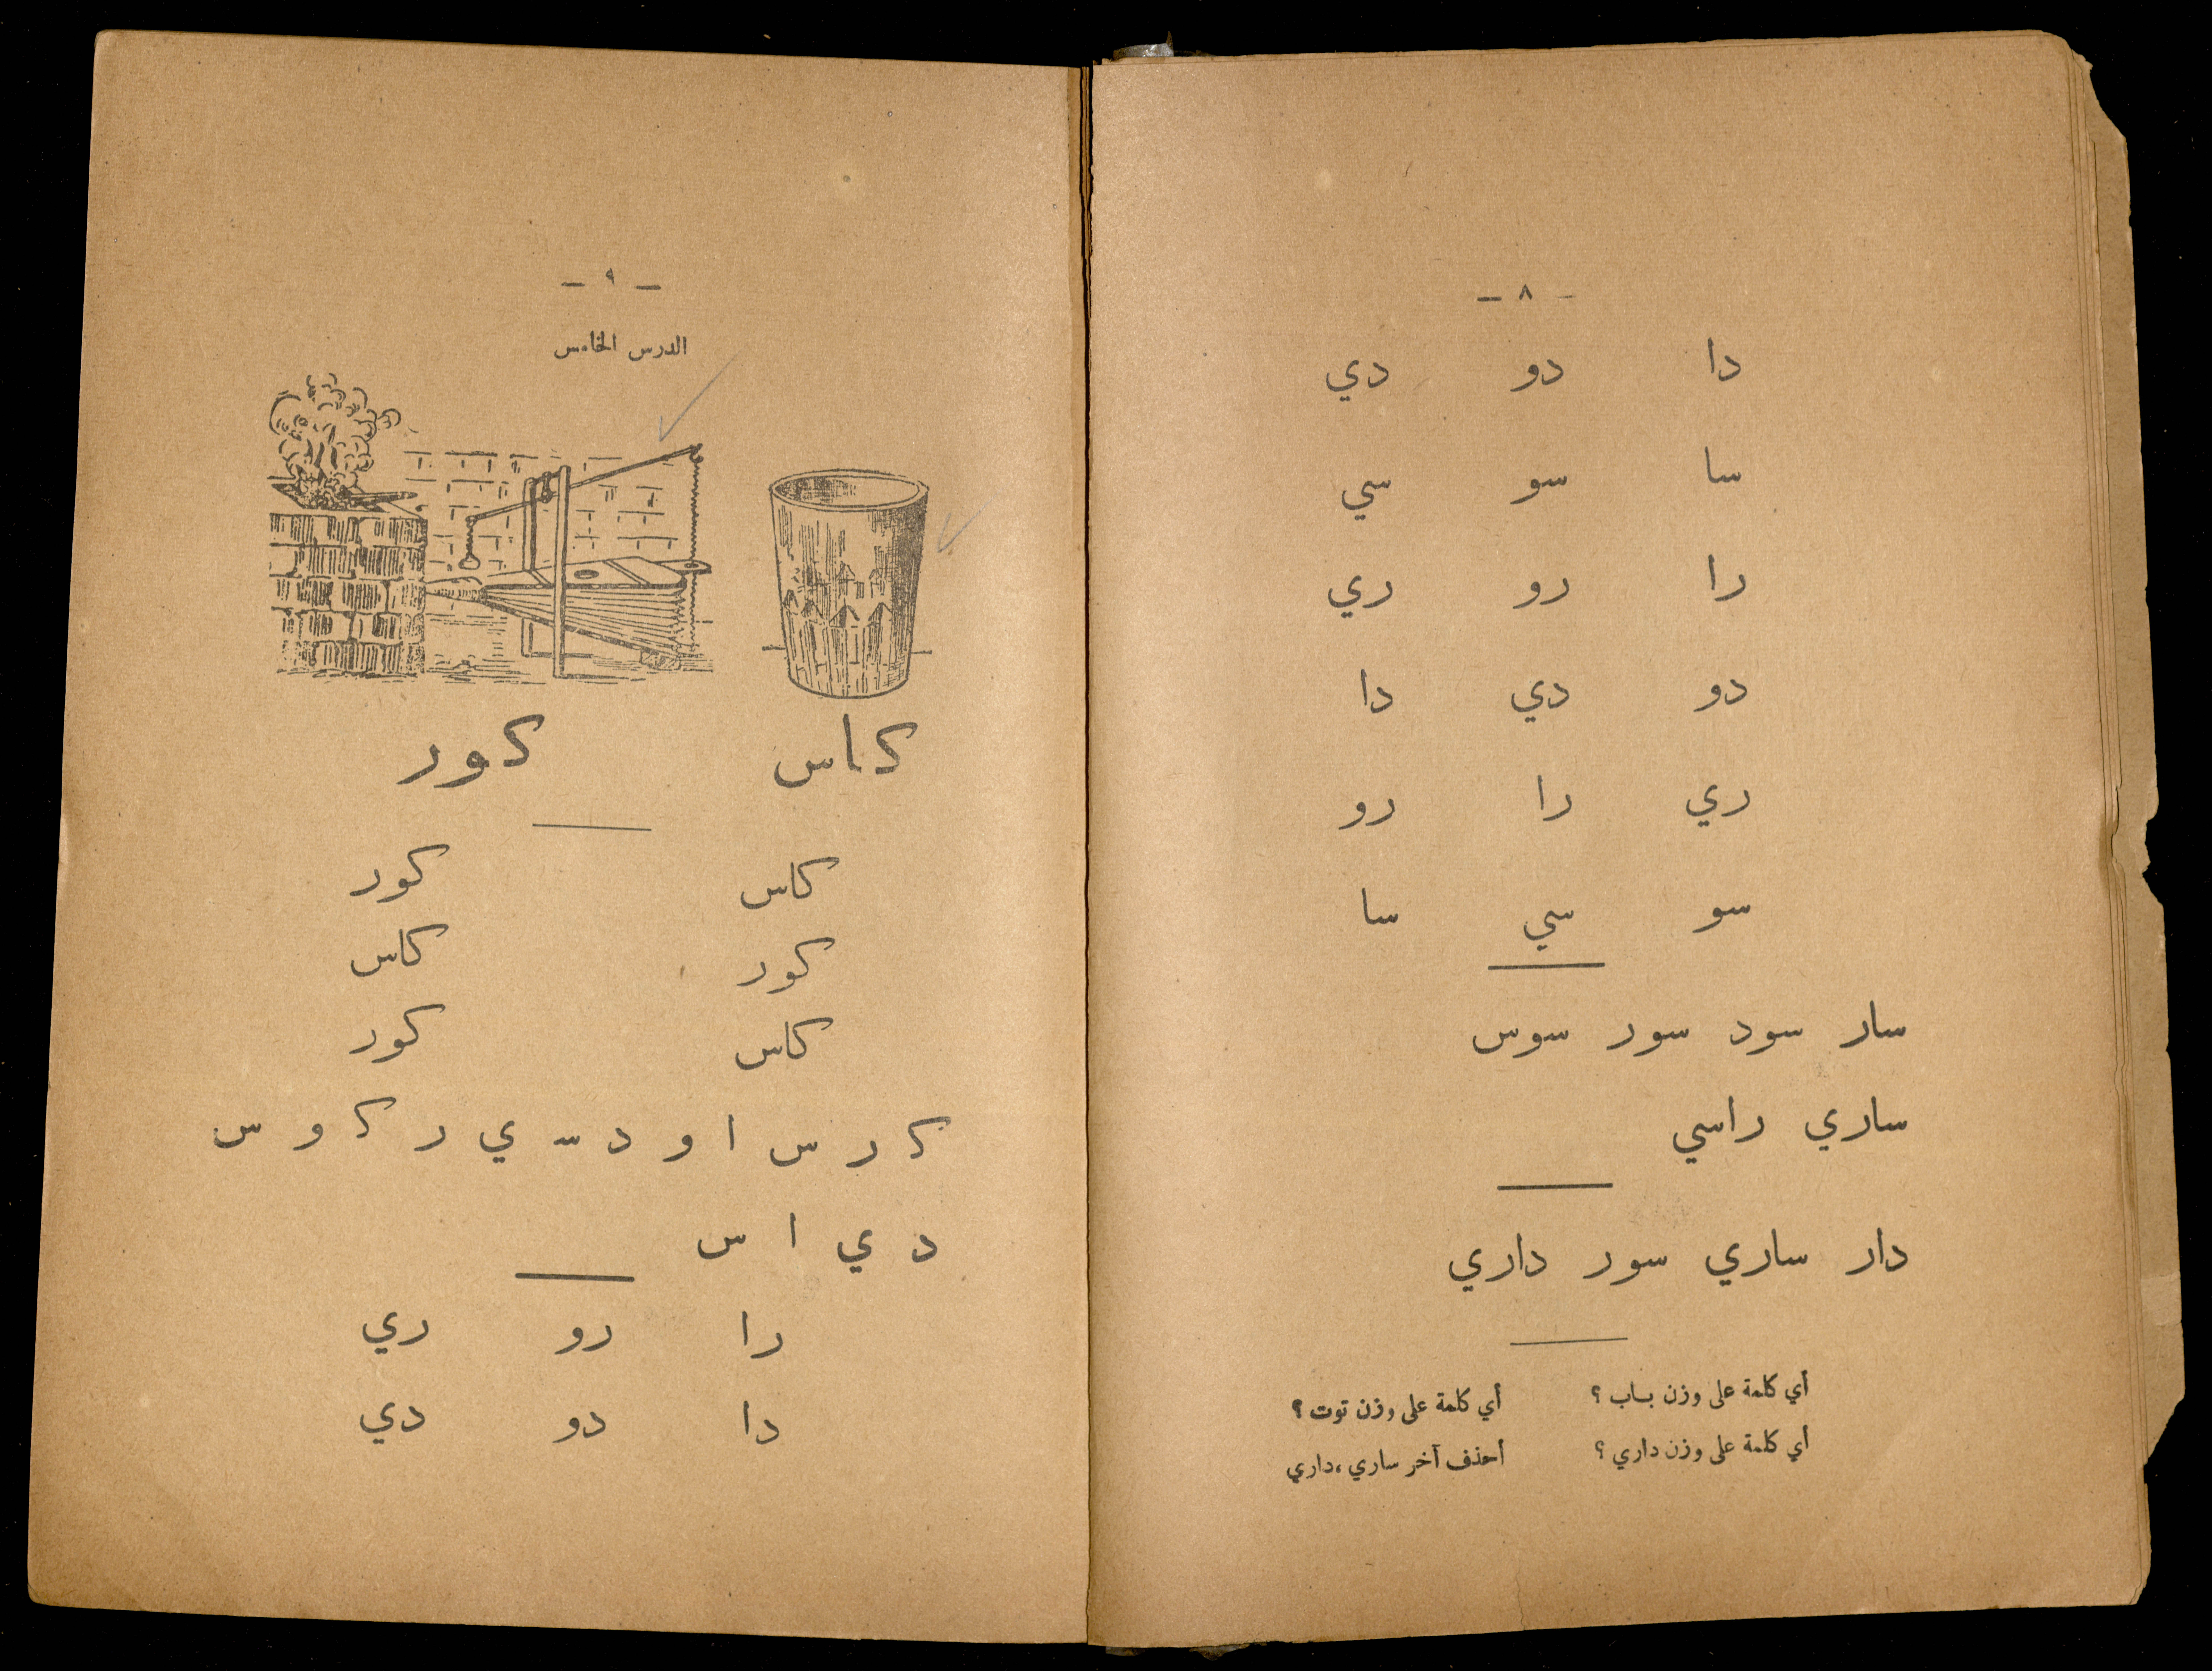 – ٨ –
دا دو دي
سا سو سي
را رو ري
دو دي دا
ري را رو
سو سي سا
سار سود سور سوس
ساري راسي
دار ساري سور داري
أي كلمة على وزن باب ؟ أي كلمة على وزن توت ؟
أي كلمة على وزن داري ؟ أحذف آخر ساري ، داري
– ٩ –
الدرس الخامس
كاس كور
كاس كور
كور كاس
كاس كور
ك ر س ا و د سـ ي ر ك و س
د ي ا س
را رو ري
دا دو دي